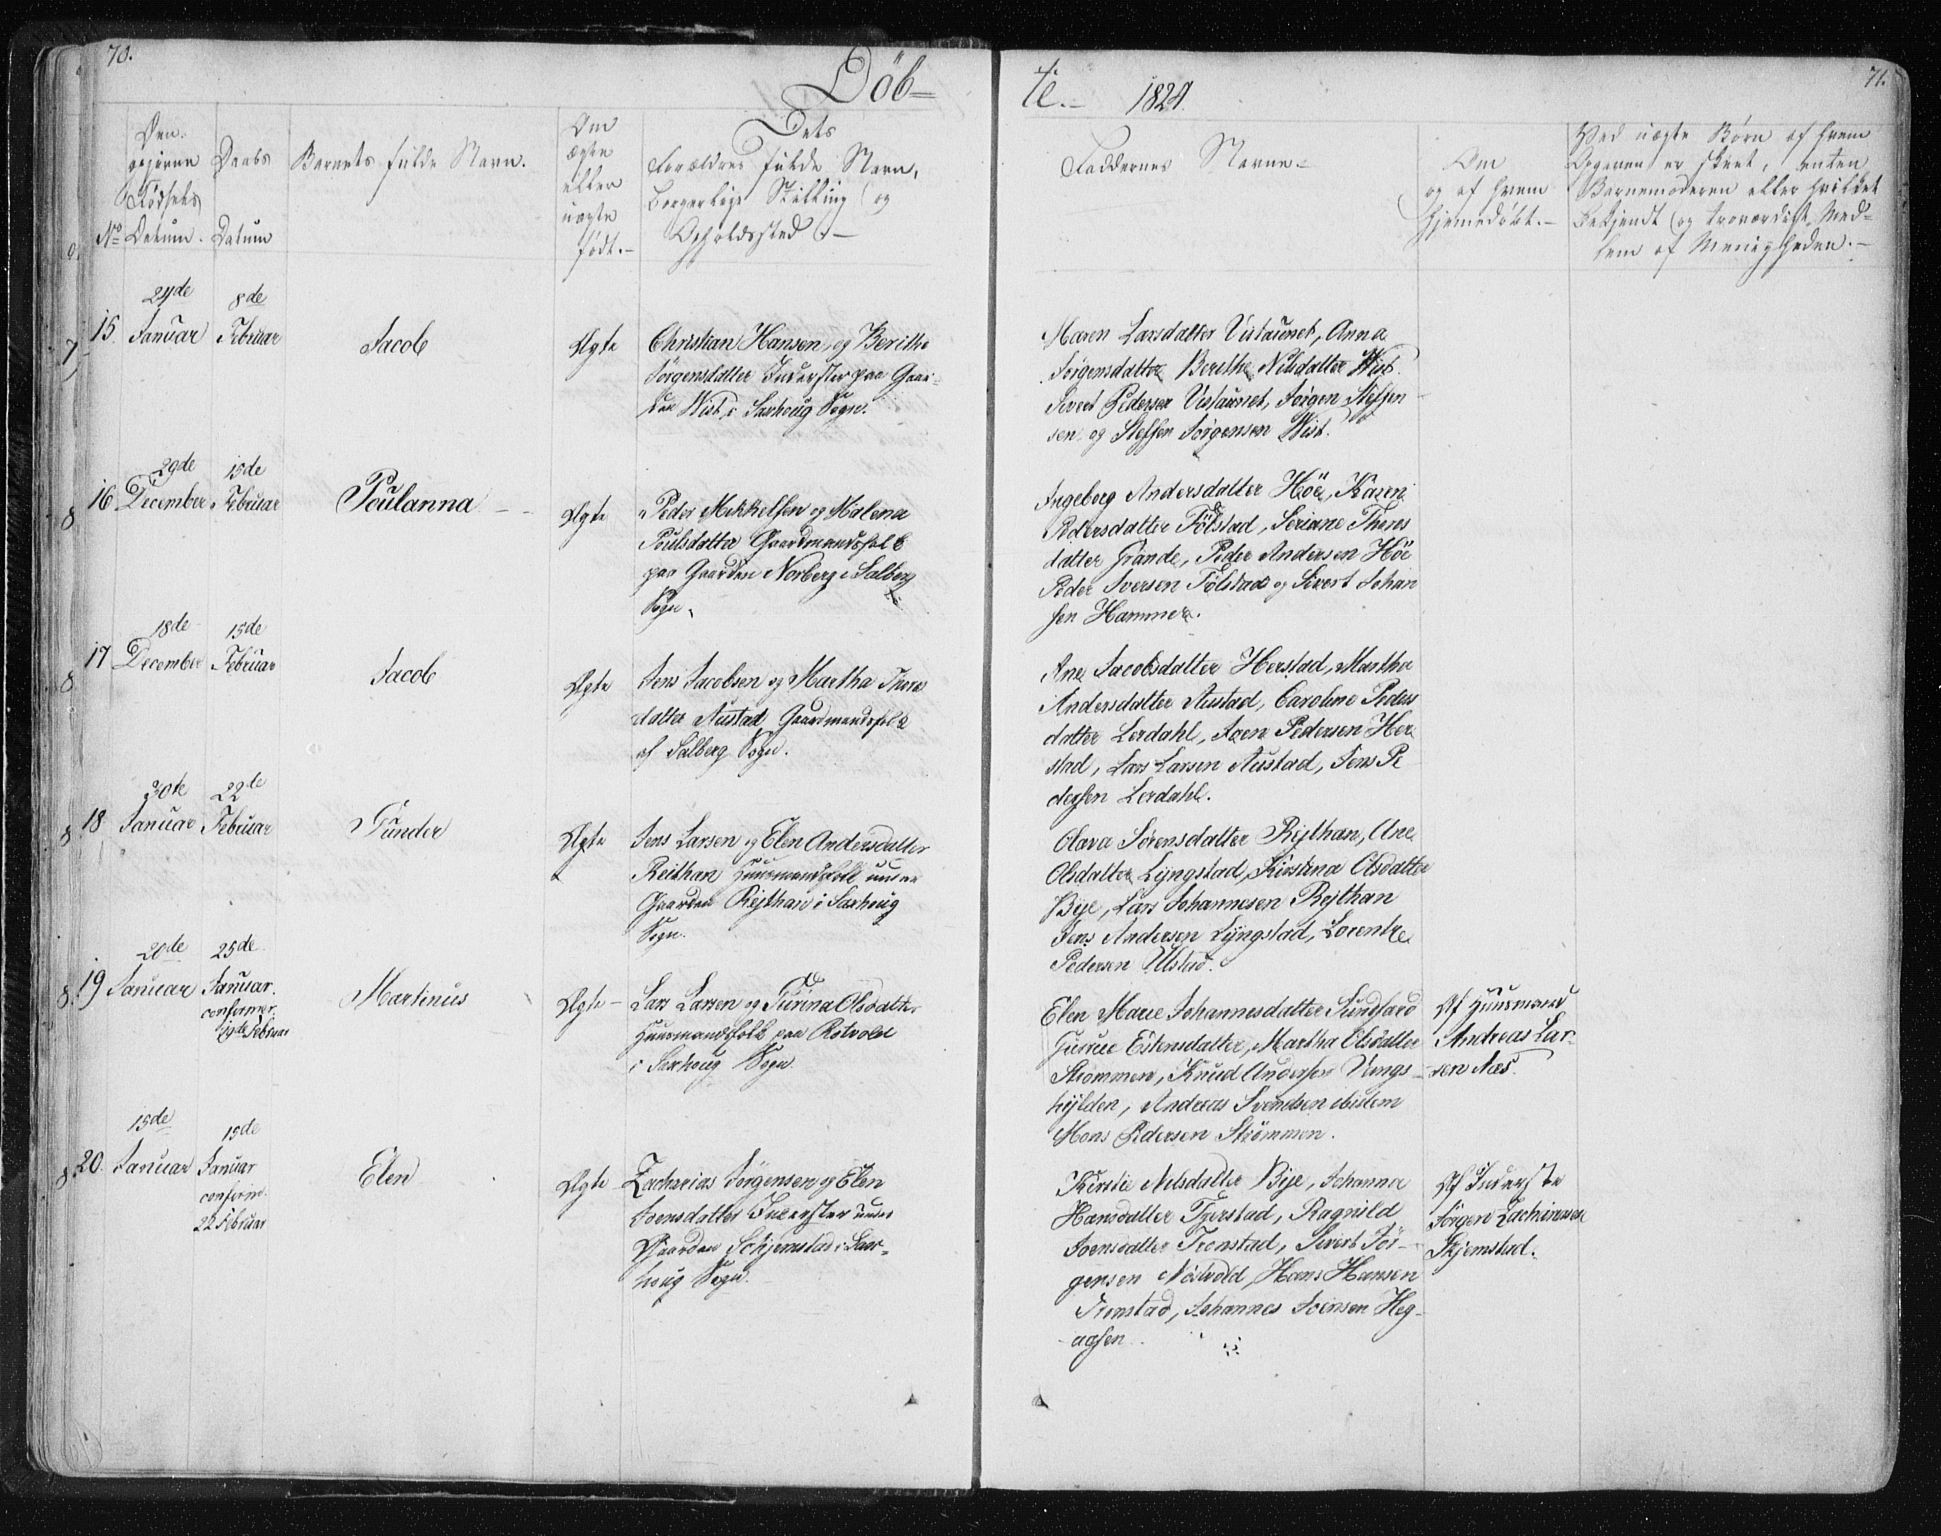 70.
Döb-
te.-
1824.
71.
Den
opgivne
Födsels
No Datum.
Daabs
Datum
Barnets fulde Navn.
Om
ægte
eller
uægte
födt.-
Dets
Forældres fulde Navn,
borgerlige Stilling (og
Opholdssted).-
Faddernes Navne-
Om
og af hvem
hjemmedöbt.-
Ved uægte Børn af hvem
Opgaven er skeet, enten
Barnemoderen eller hvilket
bekjendt (og troværdigt) Med-
lem af Menigheden.-
24de
15. Januar
8de
Februar
Jacob
Ægte
Christian Hansen og Berithe
Jörgensdatter Inderster paa Gaar-
den Wist i Saxhoug Sogn.
Maren Larsdatter Vistaunet, Anna
Jörgensdatter, Berithe Nilsdatter Wist.
Sivert Pedersen Vistaunet, Jörgen Steffen
sen og Steffen Jörgensen Wist.
29de
16 December
15de
Februar
Poulanna
Ægte
Peder Mikkelsen og Malena
Poulsdatter Gaardmandsfolk
paa Gaarden Norberg i Salberg
Sogn.
Ingeborg Andersdatter Höe, Karen
Pedersdatter Fölstad, Seriane Thores
datter Grande, Peder Andersen Höe
Peder Iversen Fölstad og Sivert Johan
sen Hammer.
18de
17 December
15de
Februar
Jacob
Ægte
Jens Jacobsen og Martha Thores
datter Austad Gaardmandsfolk
af Salberg Sogn.
Ane Jacobsdatter Herstad, Martha
Andersdatter Austad, Caroline Peders
datter Lerdahl, Joen Pedersen Her
stad, Lars Larsen Austad, Jens Pe
dersen Lerdahl.
30te
18 Januar
22de
Februar
Gunder
Ægte
Jens Larsen og Elen Andersdatter
Reithan Huusmandsfolk under
Gaarden Rejthan i Saxhoug
Sogn.
Olava Sörensdatter Rejthan, Ane
Olsdatter Lyngstad, Kirstina Olsdatter
Bye, Lars Johannesen Rejthan
Jens Andersen Lyngstad, Lorentz
Pedersen Ulstad.
20de
19 Januar
25de
Januar.
confirmer.
19de Februar
Martinus
Ægte-
Lars Larsen og Gurina Olsdatter
Huusmandsfolk paa Rotvold
i Saxhoug Sogn.
Elen Marie Johannesdatter Sundfard
Gurrue Estensdatter, Martha Olsdatter
Strommen, Knud Andersen Vangs-
hylden, Andreas Svendsen ibidem
Mons Pedersen Strömmen.
Af Huusmand
Andreas Lar-
sen Næs.
15de
20. Januar
15de
Januar
confirm.
22 Februar
Elen
Ægte
Zacharias Jörgensen og Elen
Joensdatter Inderster under
Gaarden Schjemstad i Sax-
houg Sogn.
Kerstie Nilsdatter Bye, Johanna
Hansdatter Tyerstad, Ragnild
Joensdatter Tronstad, Sivert Jör-
gensen Nöstvold, Hans Hansen
Tronstad, Johannes Joensen Heg-
aasen.
Af Inderste
Jörgen Zachariasen
Skjemstad.